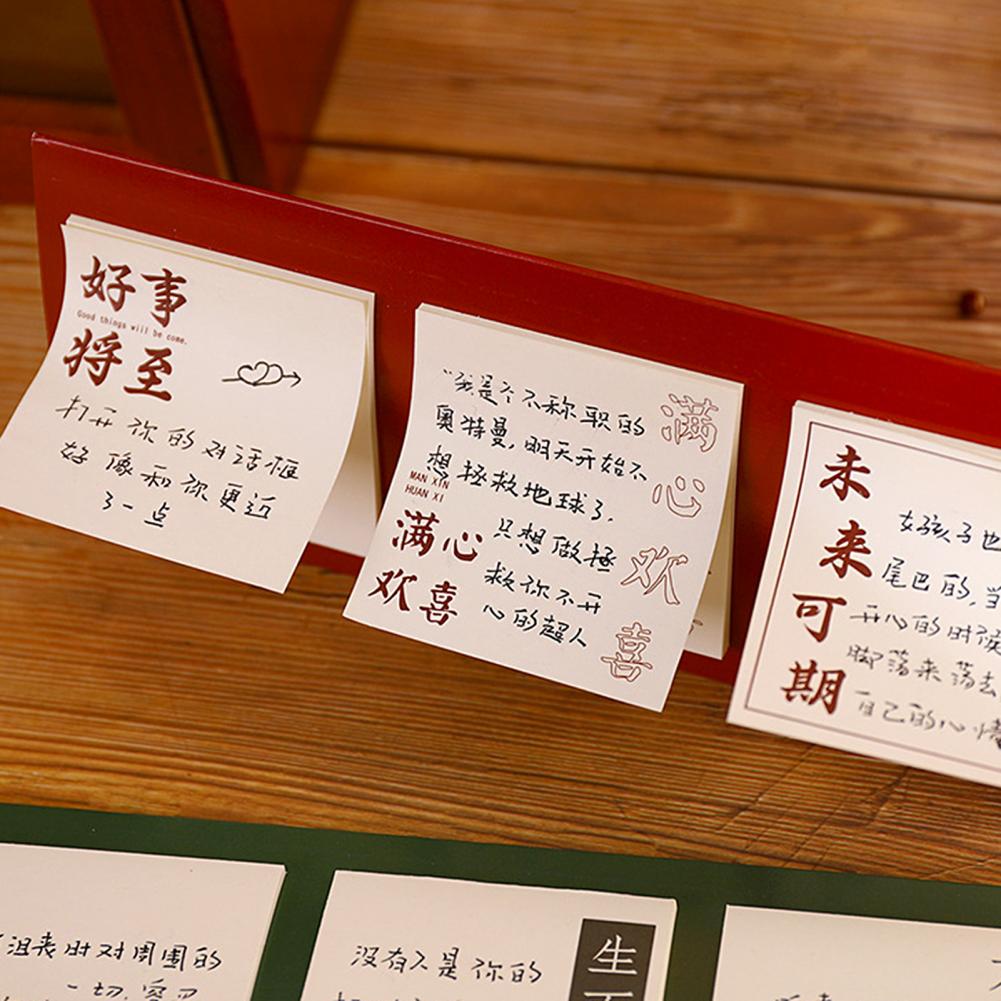 好事
Good things will be come.
将至
打开你的对话框
好像和你更近
了一点
"我是个不称职的
奥特曼,明天开始不
想拯救地球了,
只想做拯
救你不开
心的超人
MAN XIN
HUAN XI
满心
欢喜
满心欢喜
未来可期
女孩子也
尾巴的,当
开心的时候
脚荡来荡去
自己的心情
沮丧时对周围的
一切
没有人是你的
生